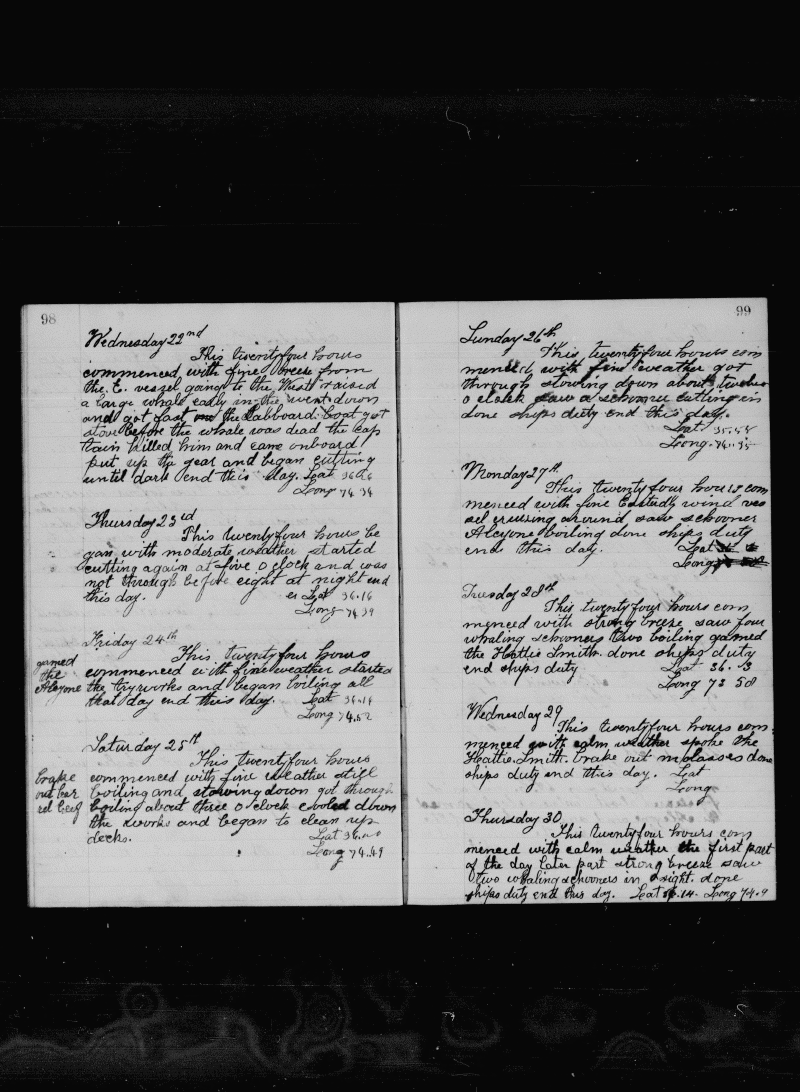 98
Wednesday 22nd
This twentyfour hours
commenced with fine breeze from
the E. vessel going to the West raised
a large whale early in the went down
and got fast the Labboard Boat got
stove before the whale was dead the cap
tain killed him and came onboard
put up the gear and began cutting
until dark end this day. Lat 36
Long 74 34
Thursday 23rd
This twentyfour hours be
gan with moderate weather started
cutting again at five o clock and was
not through before eight at night end
this day. Lat 36.16
Long 74 39
Friday 24th
This twentyfour hours
gamed
the
Alcyone
commenced with fine weather started
the tryworks and began boiling all
that day end this day. Lat 36.14
Long 74.52
Saturday 25th
This twentyfour hours
brake
out bar
rel beef
commenced with fine weather still
boiling and stowing down got through
boiling about three o clock cooled down
the works and began to clean up
decks. Lat 36
Long 74.49
99
Sunday 26th
This twentyfour hours com
menced with fine weather got
through stowing down about twelve
o clock saw a schooner cutting in
done ships duty end this day.
Lat. 35.55
Long. 74.35
Monday 27th
This twentyfour hours com
menced with fine Easterly wind ves
sel cruising around saw schooner
Alcyone boiling done ships duty
ends this day. Lat
Long
Tuesday 28th
This twentyfour hours com
menced with strong breeze saw four
whaling schooners two boiling gamed
the Hattie Smith. done ships duty
end ships duty Lat 36.13
Long 73 58
Wednesday 29
This twentyfour hours com
menced with calm weather spoke the
Hattie Smith. brake out molasses done
ships duty end this day. Lat
Long
Thursday 30
This twentyfour hours com
menced with calm weather the first part
of the day later part strong breeze saw
two whaling schooners in sight. done
ships duty end this day. Lat 36.14. Long 74.9